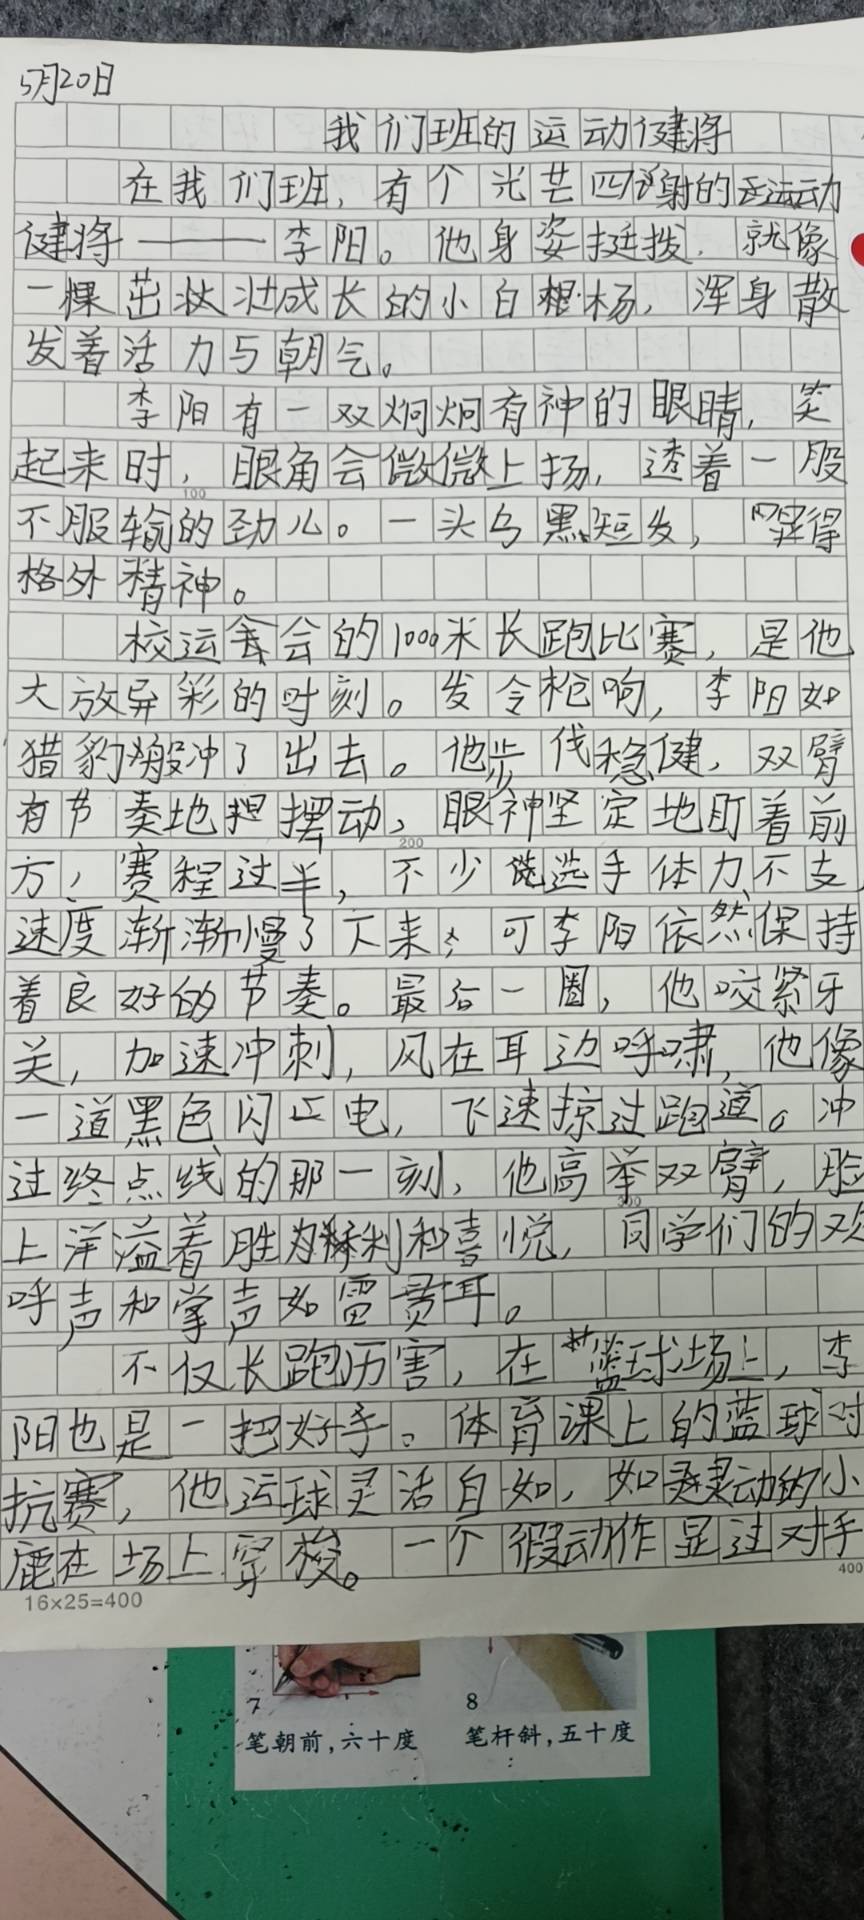 5月20日
我们班的运动健将
在我们班，有个光芒四射的运动
健将———李阳。他身姿挺拨，就像
一棵茁壮成长的小白杨，浑身散
发着活力与朝气。
李阳有一双炯炯有神的眼睛，笑
起来时，眼角会微微上扬，透着一股
不服输的劲儿。一头乌黑短发，显得
格外精神。
校运会的1000米长跑比赛，是他
大放异彩的时刻。发令枪响，李阳如
猎豹般冲了出去。他步伐稳健，双臂
有节奏地摆动，眼神坚定地盯着前
方，赛程过半，不少选手体力不支，
速度渐渐慢了下来，可李阳依然保持
着良好的节奏。最后一圈，他咬紧牙
关，加速冲刺，风在耳边呼啸，他像
一道黑色闪电，飞速掠过跑道。冲
过终点线的那一刻，他高举双臂，脸
上洋溢着胜利和喜悦，同学们的欢
呼声和掌声如雷贯耳。
不仅长跑厉害，在篮球场上，李
阳也是一把好手。体育课上的蓝球对
抗赛，他运球灵活自如，如灵动的小
鹿在场上穿梭。一个假动作显过对手
16×25=400
100
200
300
400
7
8
笔朝前，六十度
笔杆斜，五十度